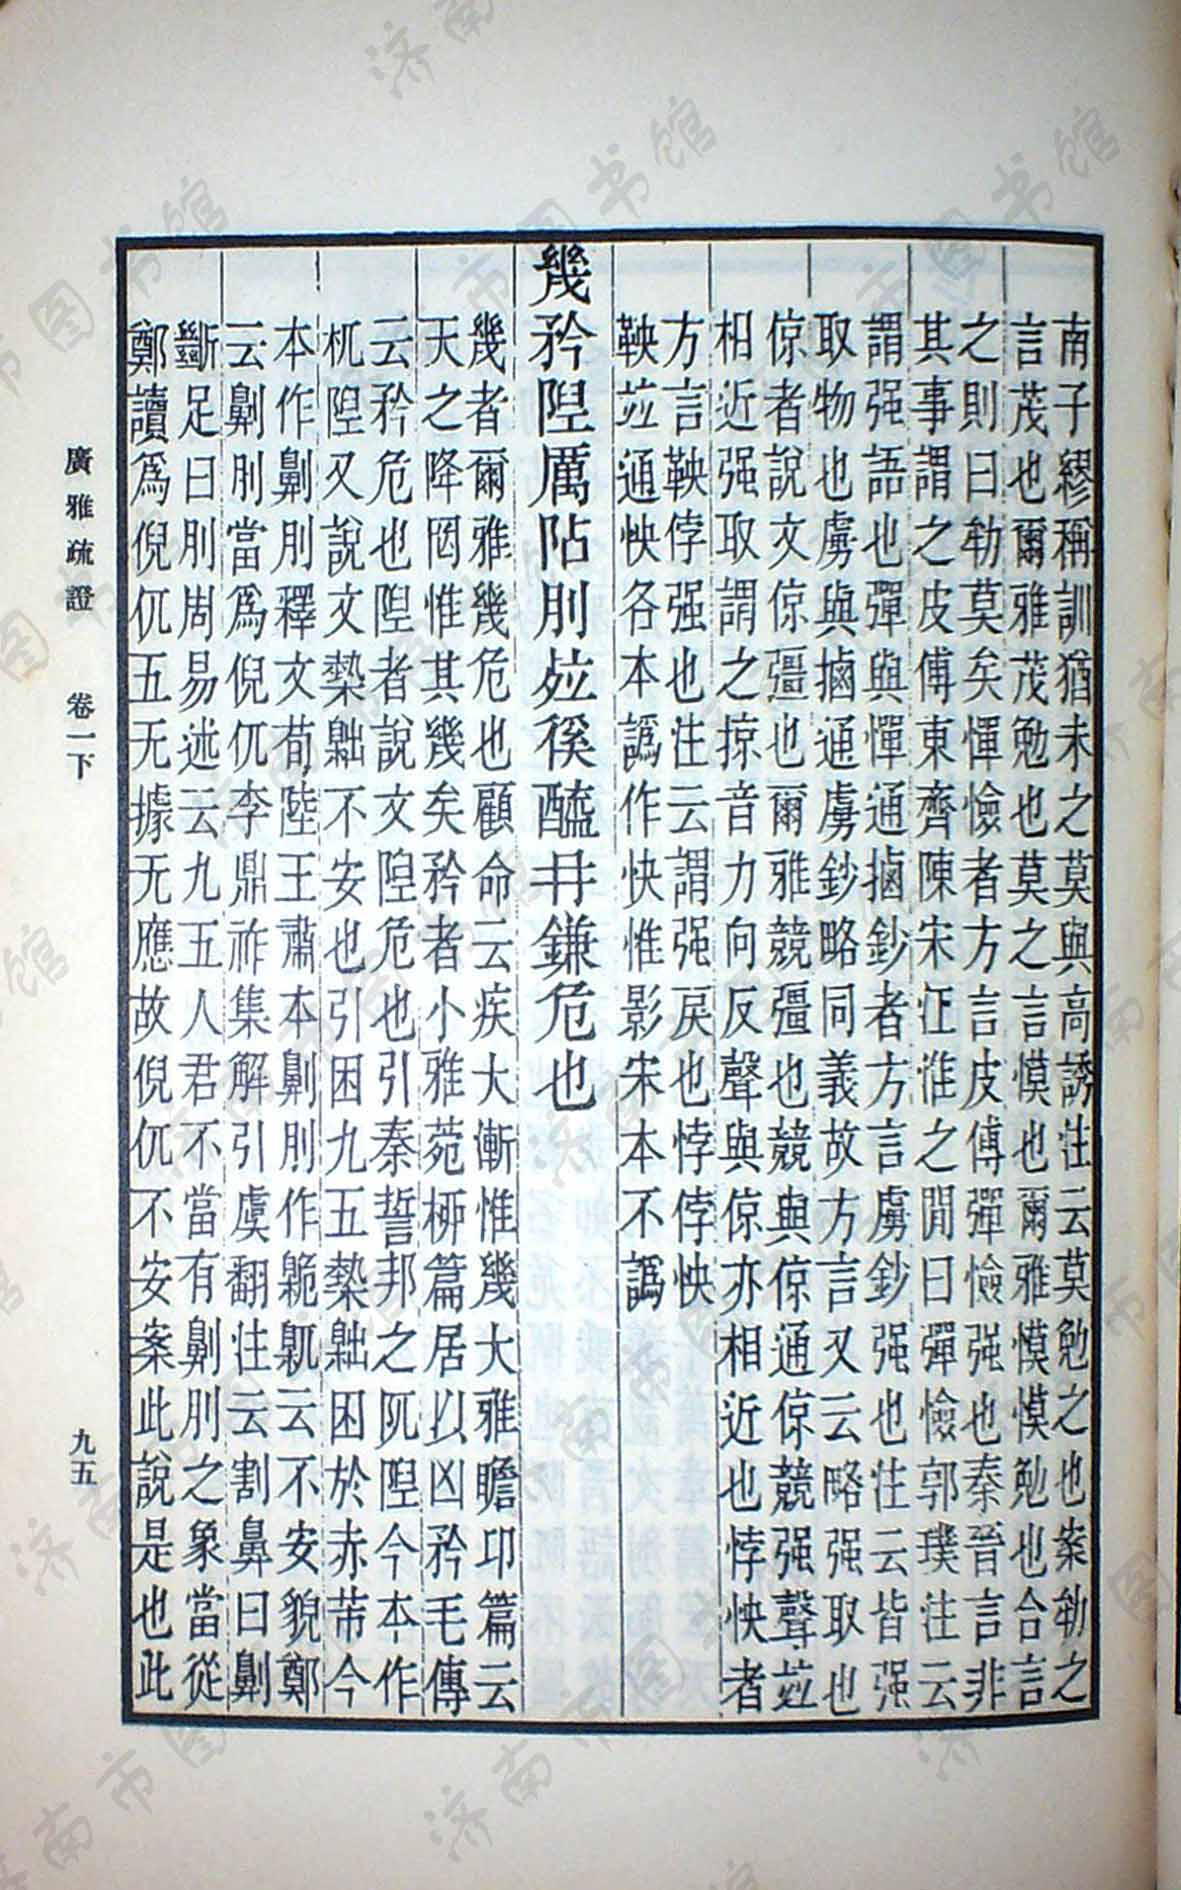 南子繆稱訓猶未之莫與高誘注云莫勉之也案勑之
言茂也爾雅茂勉也莫之言慔也爾雅慔慔勉也合言
之則曰勑莫矣憚憸者方言皮傅彈憸强也秦晉言非
其事謂之皮傅東齊陳宋江淮之閒曰彈憸郭璞注云
謂强語也彈與憚通擄鈔者方言虜鈔强也注云皆强
取物也虜與擄通虜鈔略同義故方言又云略强取也
倞者說文倞彊也爾雅競彊也競與倞通倞競强聲竝
相近强取謂之掠音力向反聲與倞亦相近也悖怏者
方言鞅悖强也注云謂强戾也悖悖怏
鞅竝通怏各本譌作快惟影宋本不譌
幾矜隉厲阽刖㱝徯醯丼鎌危也
幾者爾雅幾危也顧命云疾大漸惟幾大雅瞻卬篇云
天之降罔惟其幾矣矜者小雅菀柳篇居以凶矜毛傳
云矜危也隉者說文隉危也引秦誓邦之阢隉今本作
杌隉又說文槷䵳不安也引困九五槷䵳困於赤芾今
本作劓刖釋文荀陸王肅本劓刖作臲卼云不安貌鄭
云劓刖當爲倪㐳李鼎祚集解引虞翻注云割鼻曰劓
斷足曰刖周易述云九五人君不當有劓刖之象當從
鄭讀爲倪㐳五无據无應故倪㐳不安案此說是也此
廣雅疏證　卷一下
九五